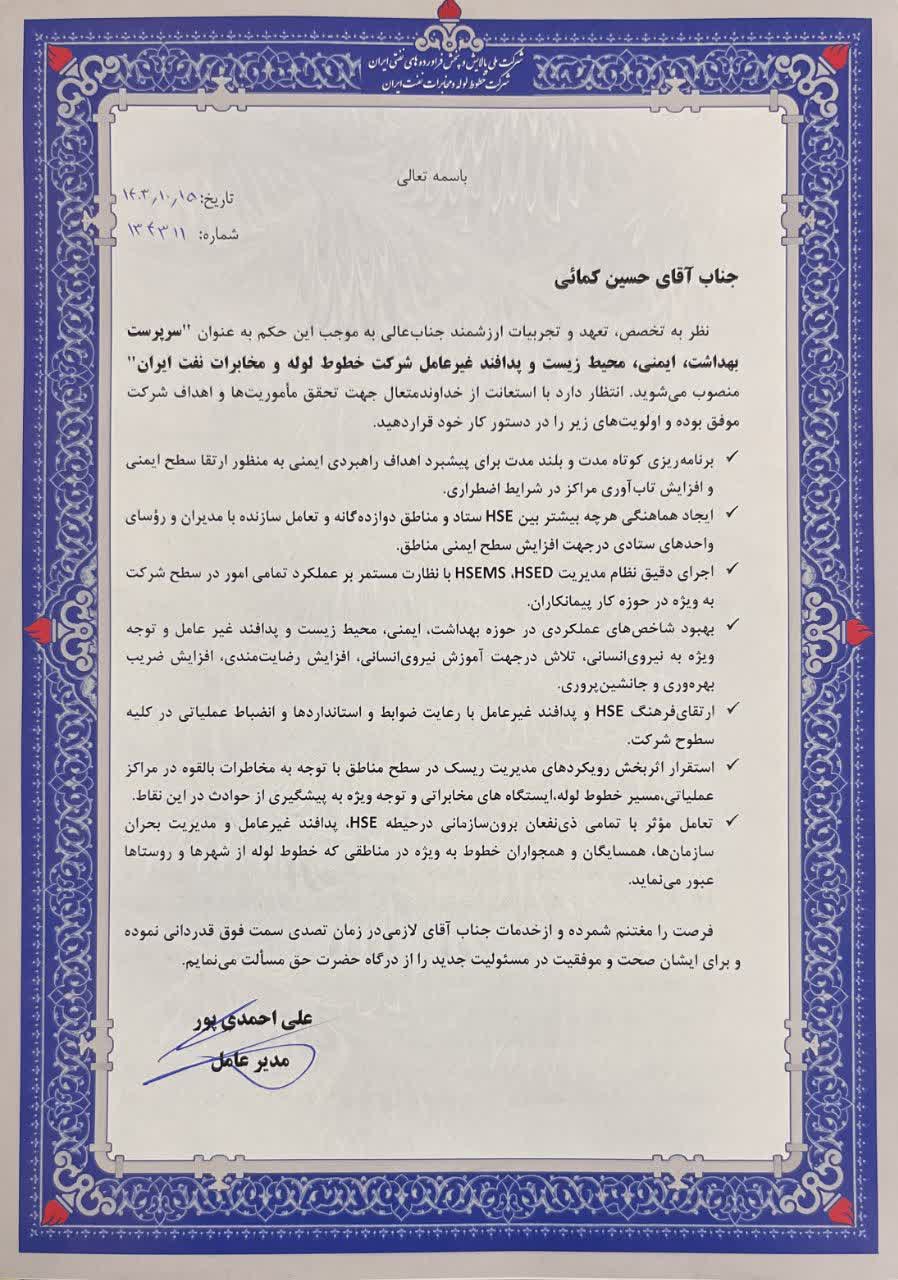 شرکت ملی پالایش و پخش فرآورده های نفتی ایران
شرکت خطوط لوله و مخابرات نفت ایران
باسمه تعالی
تاریخ: ۱۴۰۳/۱۰/۱۵
شماره: ۱۳۴۳۱۱
جناب آقای حسین کمائی
نظر به تخصص، تعهد و تجربیات ارزشمند جناب‌عالی به موجب این حکم به عنوان "سرپرست
بهداشت، ایمنی، محیط زیست و پدافند غیرعامل شرکت خطوط لوله و مخابرات نفت ایران"
منصوب می‌شوید. انتظار دارد با استعانت از خداوندمتعال جهت تحقق مأموریت‌ها و اهداف شرکت
موفق بوده و اولویت‌های زیر را در دستور کار خود قراردهید.
✓ برنامه‌ریزی کوتاه مدت و بلند مدت برای پیشبرد اهداف راهبردی ایمنی به منظور ارتقا سطح ایمنی
و افزایش تاب‌آوری مراکز در شرایط اضطراری.
✓ ایجاد هماهنگی هرچه بیشتر بین HSE ستاد و مناطق دوازده‌گانه و تعامل سازنده با مدیران و رؤسای
واحدهای ستادی درجهت افزایش سطح ایمنی مناطق.
✓ اجرای دقیق نظام مدیریت HSEMS ،HSED با نظارت مستمر بر عملکرد تمامی امور در سطح شرکت
به ویژه در حوزه کار پیمانکاران.
✓ بهبود شاخص‌های عملکردی در حوزه بهداشت، ایمنی، محیط زیست و پدافند غیر عامل و توجه
ویژه به نیروی‌انسانی، تلاش درجهت آموزش نیروی‌انسانی، افزایش رضایت‌مندی، افزایش ضریب
بهره‌وری و جانشین‌پروری.
✓ ارتقای‌فرهنگ HSE و پدافند غیرعامل با رعایت ضوابط و استانداردها و انضباط عملیاتی در کلیه
سطوح شرکت.
✓ استقرار اثربخش رویکردهای مدیریت ریسک در سطح مناطق با توجه به مخاطرات بالقوه در مراکز
عملیاتی،مسیر خطوط لوله،ایستگاه های مخابراتی و توجه ویژه به پیشگیری از حوادث در این نقاط.
✓ تعامل مؤثر با تمامی ذی‌نفعان برون‌سازمانی درحیطه HSE، پدافند غیرعامل و مدیریت بحران
سازمان‌ها، همسایگان و همجواران خطوط به ویژه در مناطقی که خطوط لوله از شهرها و روستاها
عبور می‌نماید.
فرصت را مغتنم شمرده و ازخدمات جناب آقای لازمی‌در زمان تصدی سمت فوق قدردانی نموده
و برای ایشان صحت و موفقیت در مسئولیت جدید را از درگاه حضرت حق مسألت می‌نمایم.
علی احمدی پور
مدیر عامل